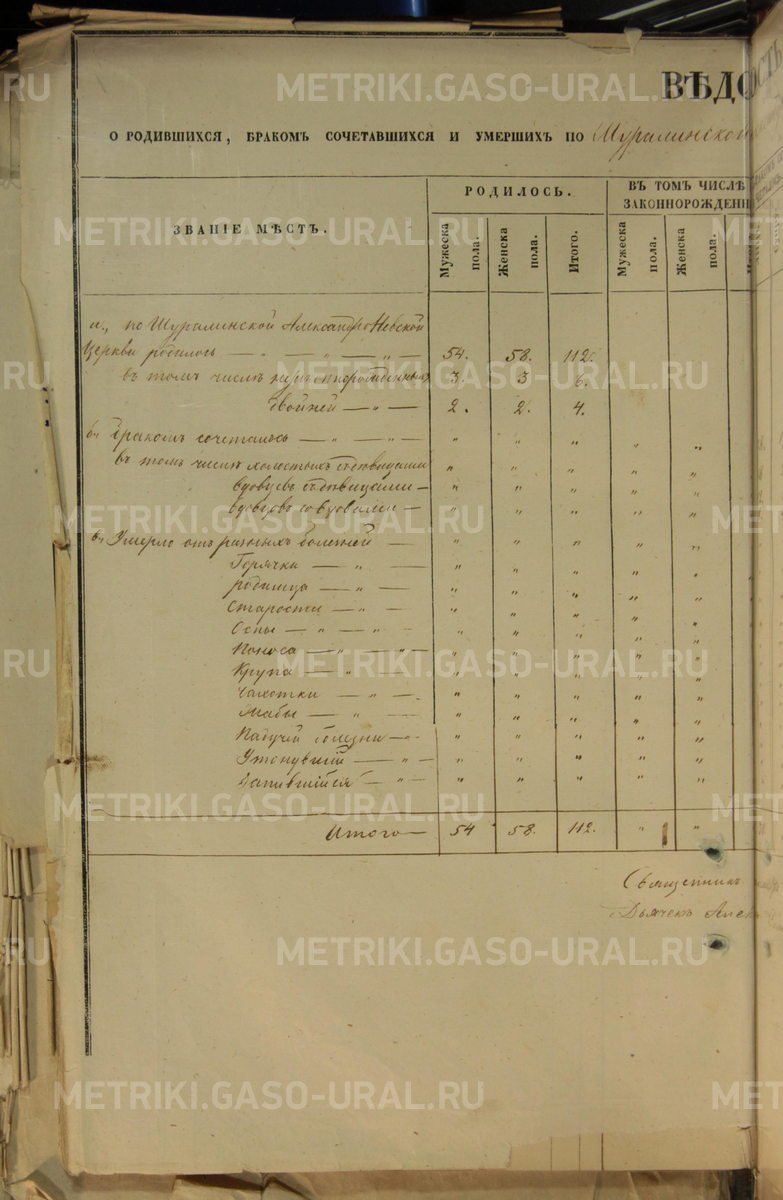 METRIKI.GASO-URAL.RU
ВѢДО
О РОДИВШИХСЯ, БРАКОМЪ СОЧЕТАВШИХСЯ И УМЕРШИХЪ ПО Шуралинской
ЗВАНІЕ МѢСТЪ.
РОДИЛОСЬ.
Мужеска пола.
Женска пола.
Итого.
ВЪ ТОМЪ ЧИСЛѢ
ЗАКОННОРОЖДЕНН
Мужеска пола.
Женска пола.
а., по Шуралинской Александро Невской
Церкви родилось — „ — „ — 54. 58. 112.
въ томъ числѣ 3. 3 6.
двойней — „ — 2. 2. 4.
б., Бракомъ сочеталось — „ — „ — „ „ „ „ „
въ томъ числѣ холостыхъ съ дѣвицами „ „ „ „ „
вдовцевъ съ дѣвицами — „ „ „ „ „
вдовцовъ со вдовами — „ „ „ „ „
в., Умерло отъ разныхъ болезней — „ „ „ „ „
Горячка — „ — „ „ „ „ „
родимца — „ — „ „ „ „ „
Старости — „ — „ „ „ „ „
Оспы — „ — „ — „ „ „ „ „
Поноса — „ — „ — „ „ „ „ „
Крупа — „ — „ „ „ „ „
Чахотки — „ — „ „ „ „ „
Жабы — „ — „ „ „ „ „
Падучей болезни — „ „ „ „ „ „
Утонувшій — „ — „ „ „ „ „
— „ — „ „ „ „ „
Итого — 54 58. 112. „ „
Священникъ
Дьячекъ Алек